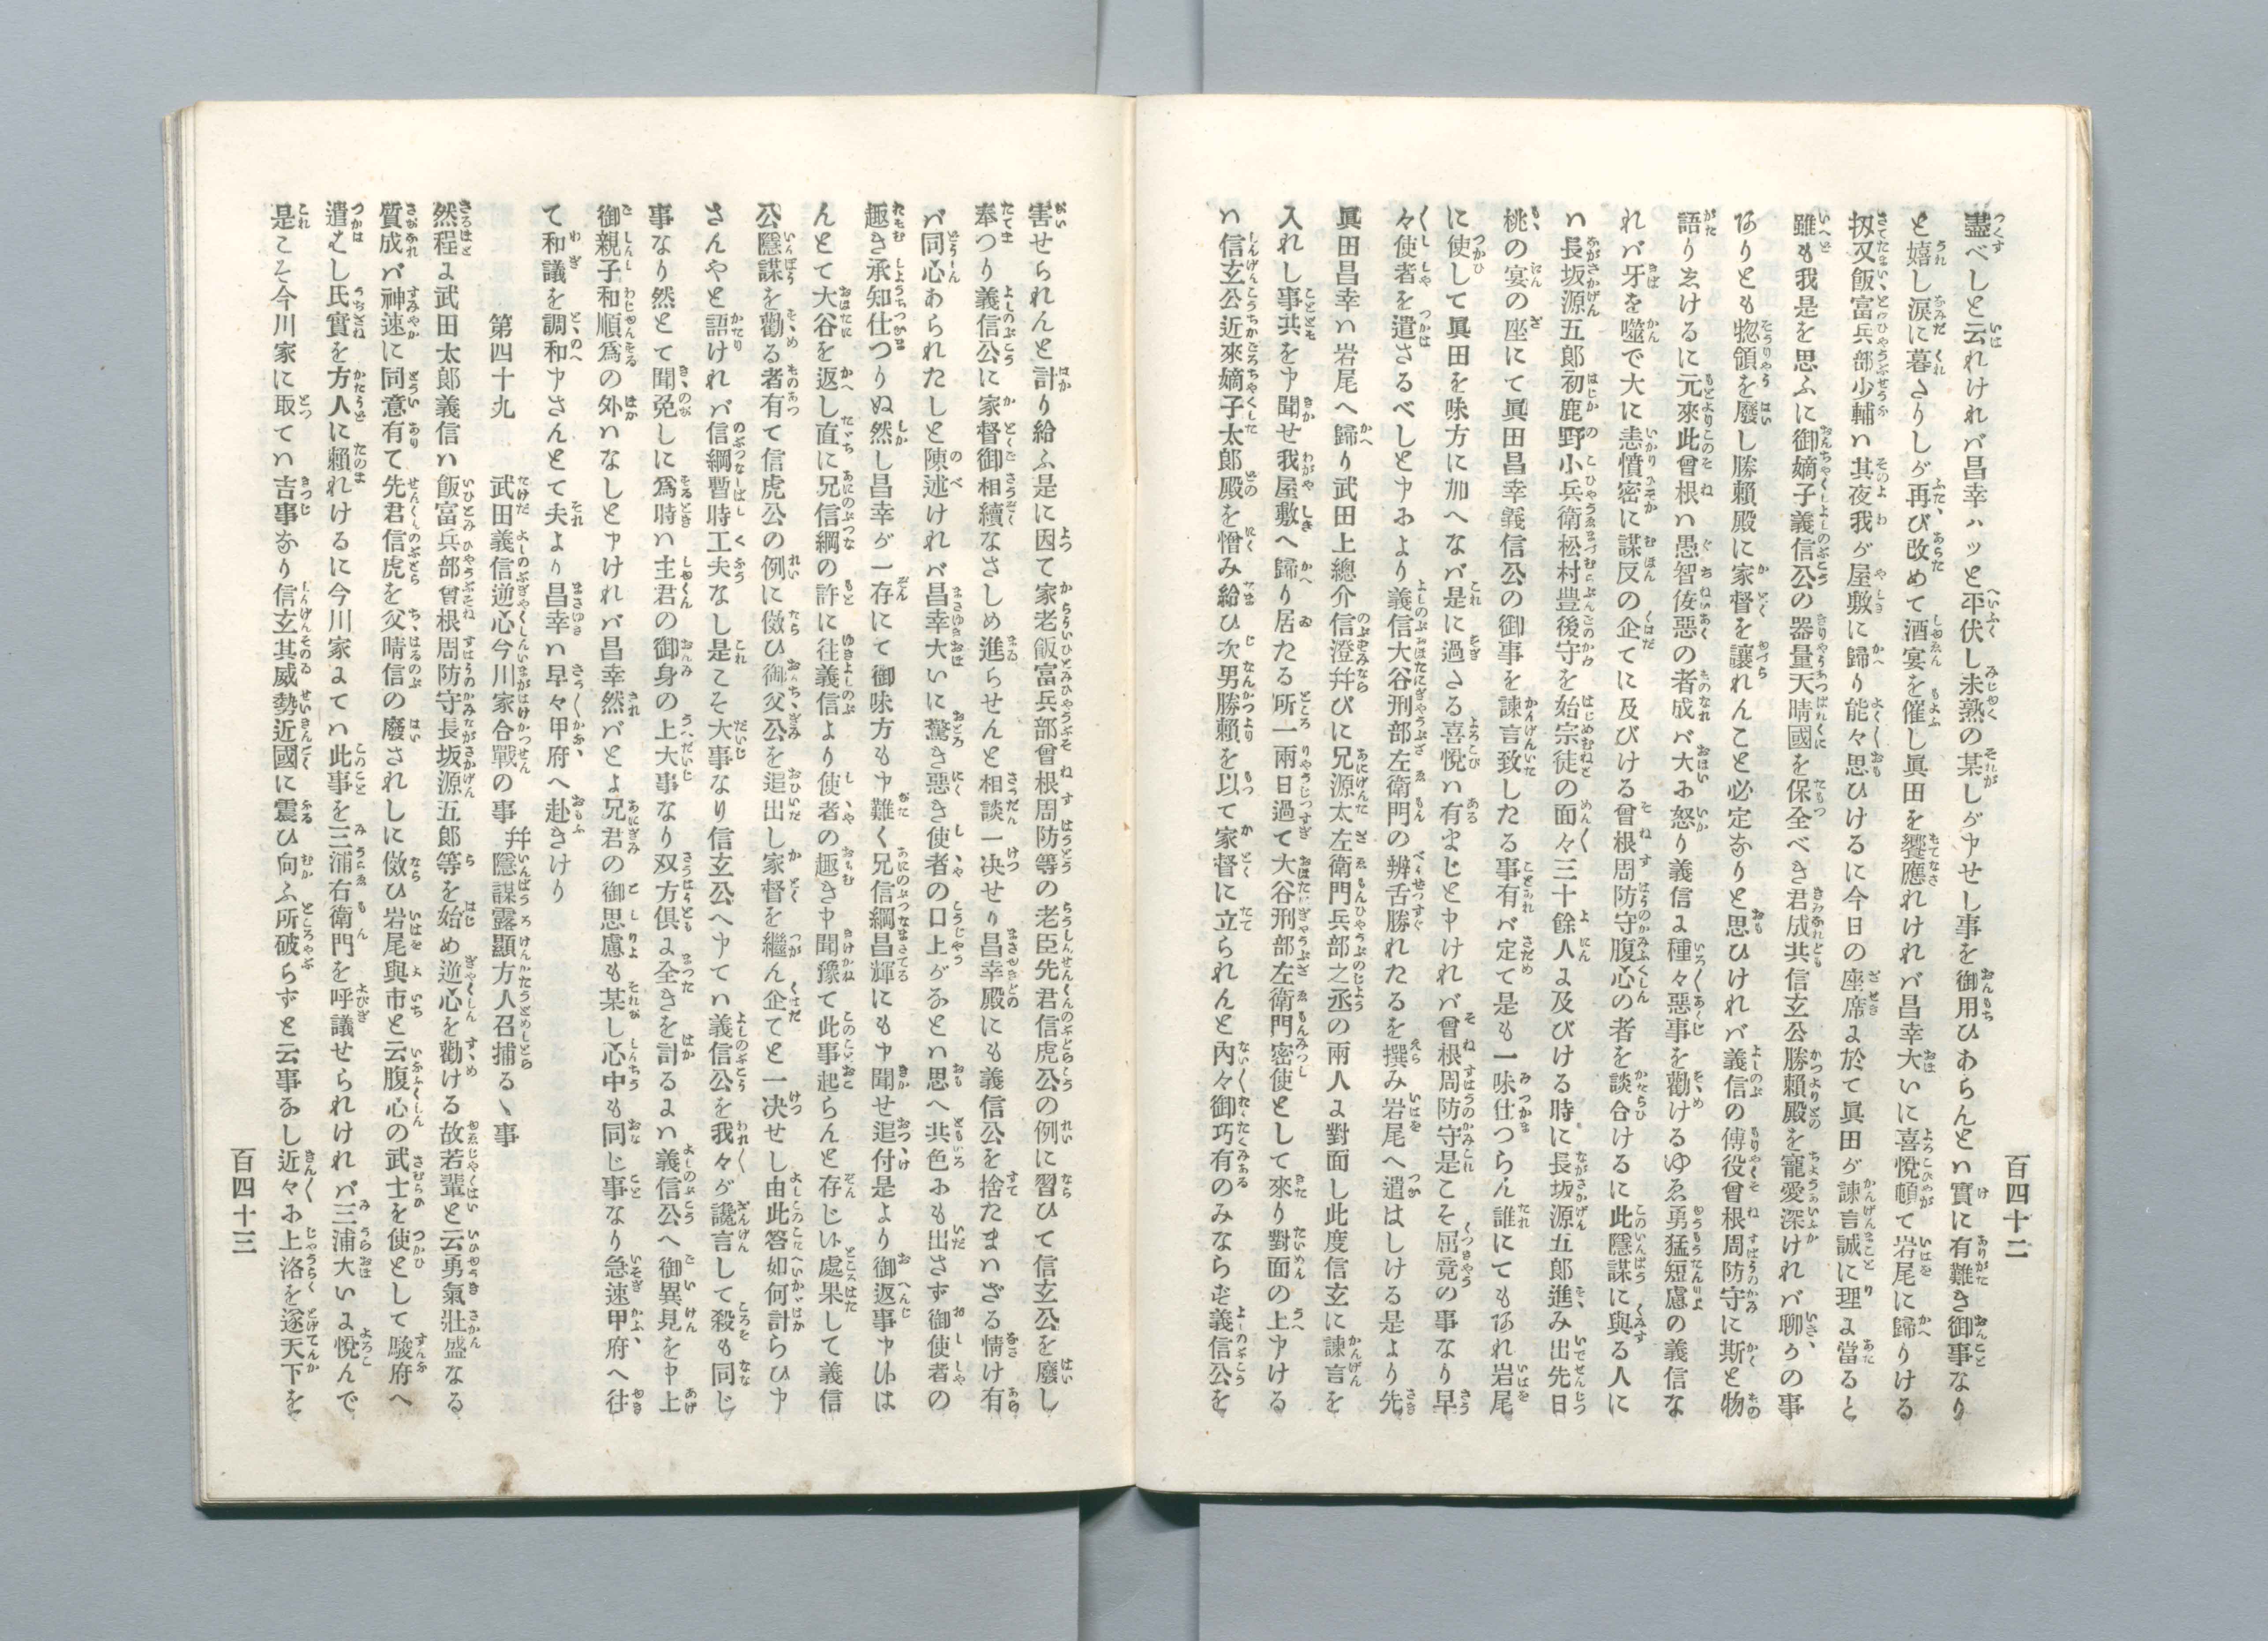 百四十二
盡べしと云れけれバ昌幸ハッと平伏し未熟の某しが申せし事を御用ひあらんとハ實に有難き御事なり
と嬉し涙に暮さりしが再び改めて酒宴を催し眞田を饗應れけれバ昌幸大いに喜悅頓て岩尾に歸りける
扨又飯富兵部少輔ハ其夜我が屋敷に歸り能々思ひけるに今日の座席に於て眞田が諫言誠に理に當ると
雖も我是を思ふに御嫡子義信公の器量天晴國を保全べき君成共信玄公勝賴殿を寵愛深けれバ聊かの事
ありとも惣領を廢し勝賴殿に家督を讓れんこと必定なりと思ひけれバ義信の傅役曾根周防守に斯と物
語りゑけるに元來此曾根ハ愚智佞惡の者成バ大お怒り義信に種々惡事を勸けるゆゑ勇猛短慮の義信な
れバ牙を噬で大に恚憤密に謀反の企てに及びける曾根周防守腹心の者を談合けるに此隱謀に與る人に
ハ長坂源五郎初鹿野小兵衛松村豊後守を始宗徒の面々三十餘人に及びける時に長坂源五郎進み出先日
桃の宴の座にて眞田昌幸義信公の御事を諫言致したる事有バ定て是も一味仕つらん誰にてもあれ岩尾
に使して眞田を味方に加へなバ是に過さる喜悅ハ有まじと申けれバ曾根周防守是こそ屈竟の事なり早
々使者を遣さるべしと申おより義信大谷刑部左衛門の辨舌勝れたるを撰み岩尾へ遣はしける是より先
眞田昌幸ハ岩尾へ歸り武田上總介信澄幷びに兄源太左衛門兵部之丞の兩人に對面し此度信玄に諫言を
入れし事共を申聞せ我屋敷へ歸り居たる所一兩日過て大谷刑部左衛門密使として來り對面の上申ける
ハ信玄公近來嫡子太郎殿を憎み給ひ次男勝賴を以て家督に立られんと內々御巧有のみならず義信公を
害せられんと計り給ふ是に因て家老飯富兵部曾根周防等の老臣先君信虎公の例に習ひて信玄公を廢し
奉つり義信公に家督御相續なさしめ進らせんと相談一决せり昌幸殿にも義信公を捨たまハざる情け有
バ同心あられたしと陳述けれバ昌幸大いに驚き惡き使者の口上がなとハ思へ共色おも出さず御使者の
趣き承知仕つりぬ然し昌幸が一存にて御味方も申難く兄信綱昌輝にも申聞せ追付是より御返事申ははは
んとて大谷を返し直に兄信綱の許に往義信より使者の趣き申聞豫て此事起らんと存じいる處果して義信
公隱謀を勸る者有て信虎公の例に傚ひ御父公を追出し家督を繼ん企てと一决せし由此答如何計らひ申
さんやと語けれバ信綱暫時工夫なし是こそ大事なり信玄公へ申てハ義信公を我々が讒言して殺も同じ
事なり然とて聞免しに爲時ハ主君の御身の上大事なり双方俱に全きを計るにハ義信公へ御異見を申上
御親子和順爲の外ハなしと申けれバ昌幸然バとよ兄君の御思慮も某し心中も同じ事なり急速甲府へ往
て和議を調和申さんとて夫より昌幸ハ早々甲府へ赴きけり
第四十九　武田義信逆心今川家合戰の事　幷隱謀露顯方人召捕るゝ事
然程に武田太郎義信ハ飯富兵部曾根周防守長坂源五郎等を始め逆心を勸ける故若輩と云勇氣壯盛なる
質成バ神速に同意有て先君信虎を父晴信の廢されしに傚ひ岩尾與市と云腹心の武士を使として駿府へ
遣はし氏實を方人に賴れけるに今川家にてハ此事を三浦右衛門を呼議せられけれバ三浦大いに悅んで
是こそ今川家に取てハ吉事なり信玄其威勢近國に震ひ向ふ所破らずと云事なし近々お上洛を遂天下を
百四十三